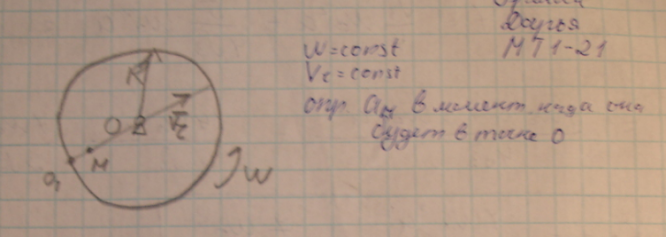 Дарья
МТ1-21
W=const
Vr=const
опр. aм в момент, когда она
будет в точке О
R
O
Vr
M
a
W